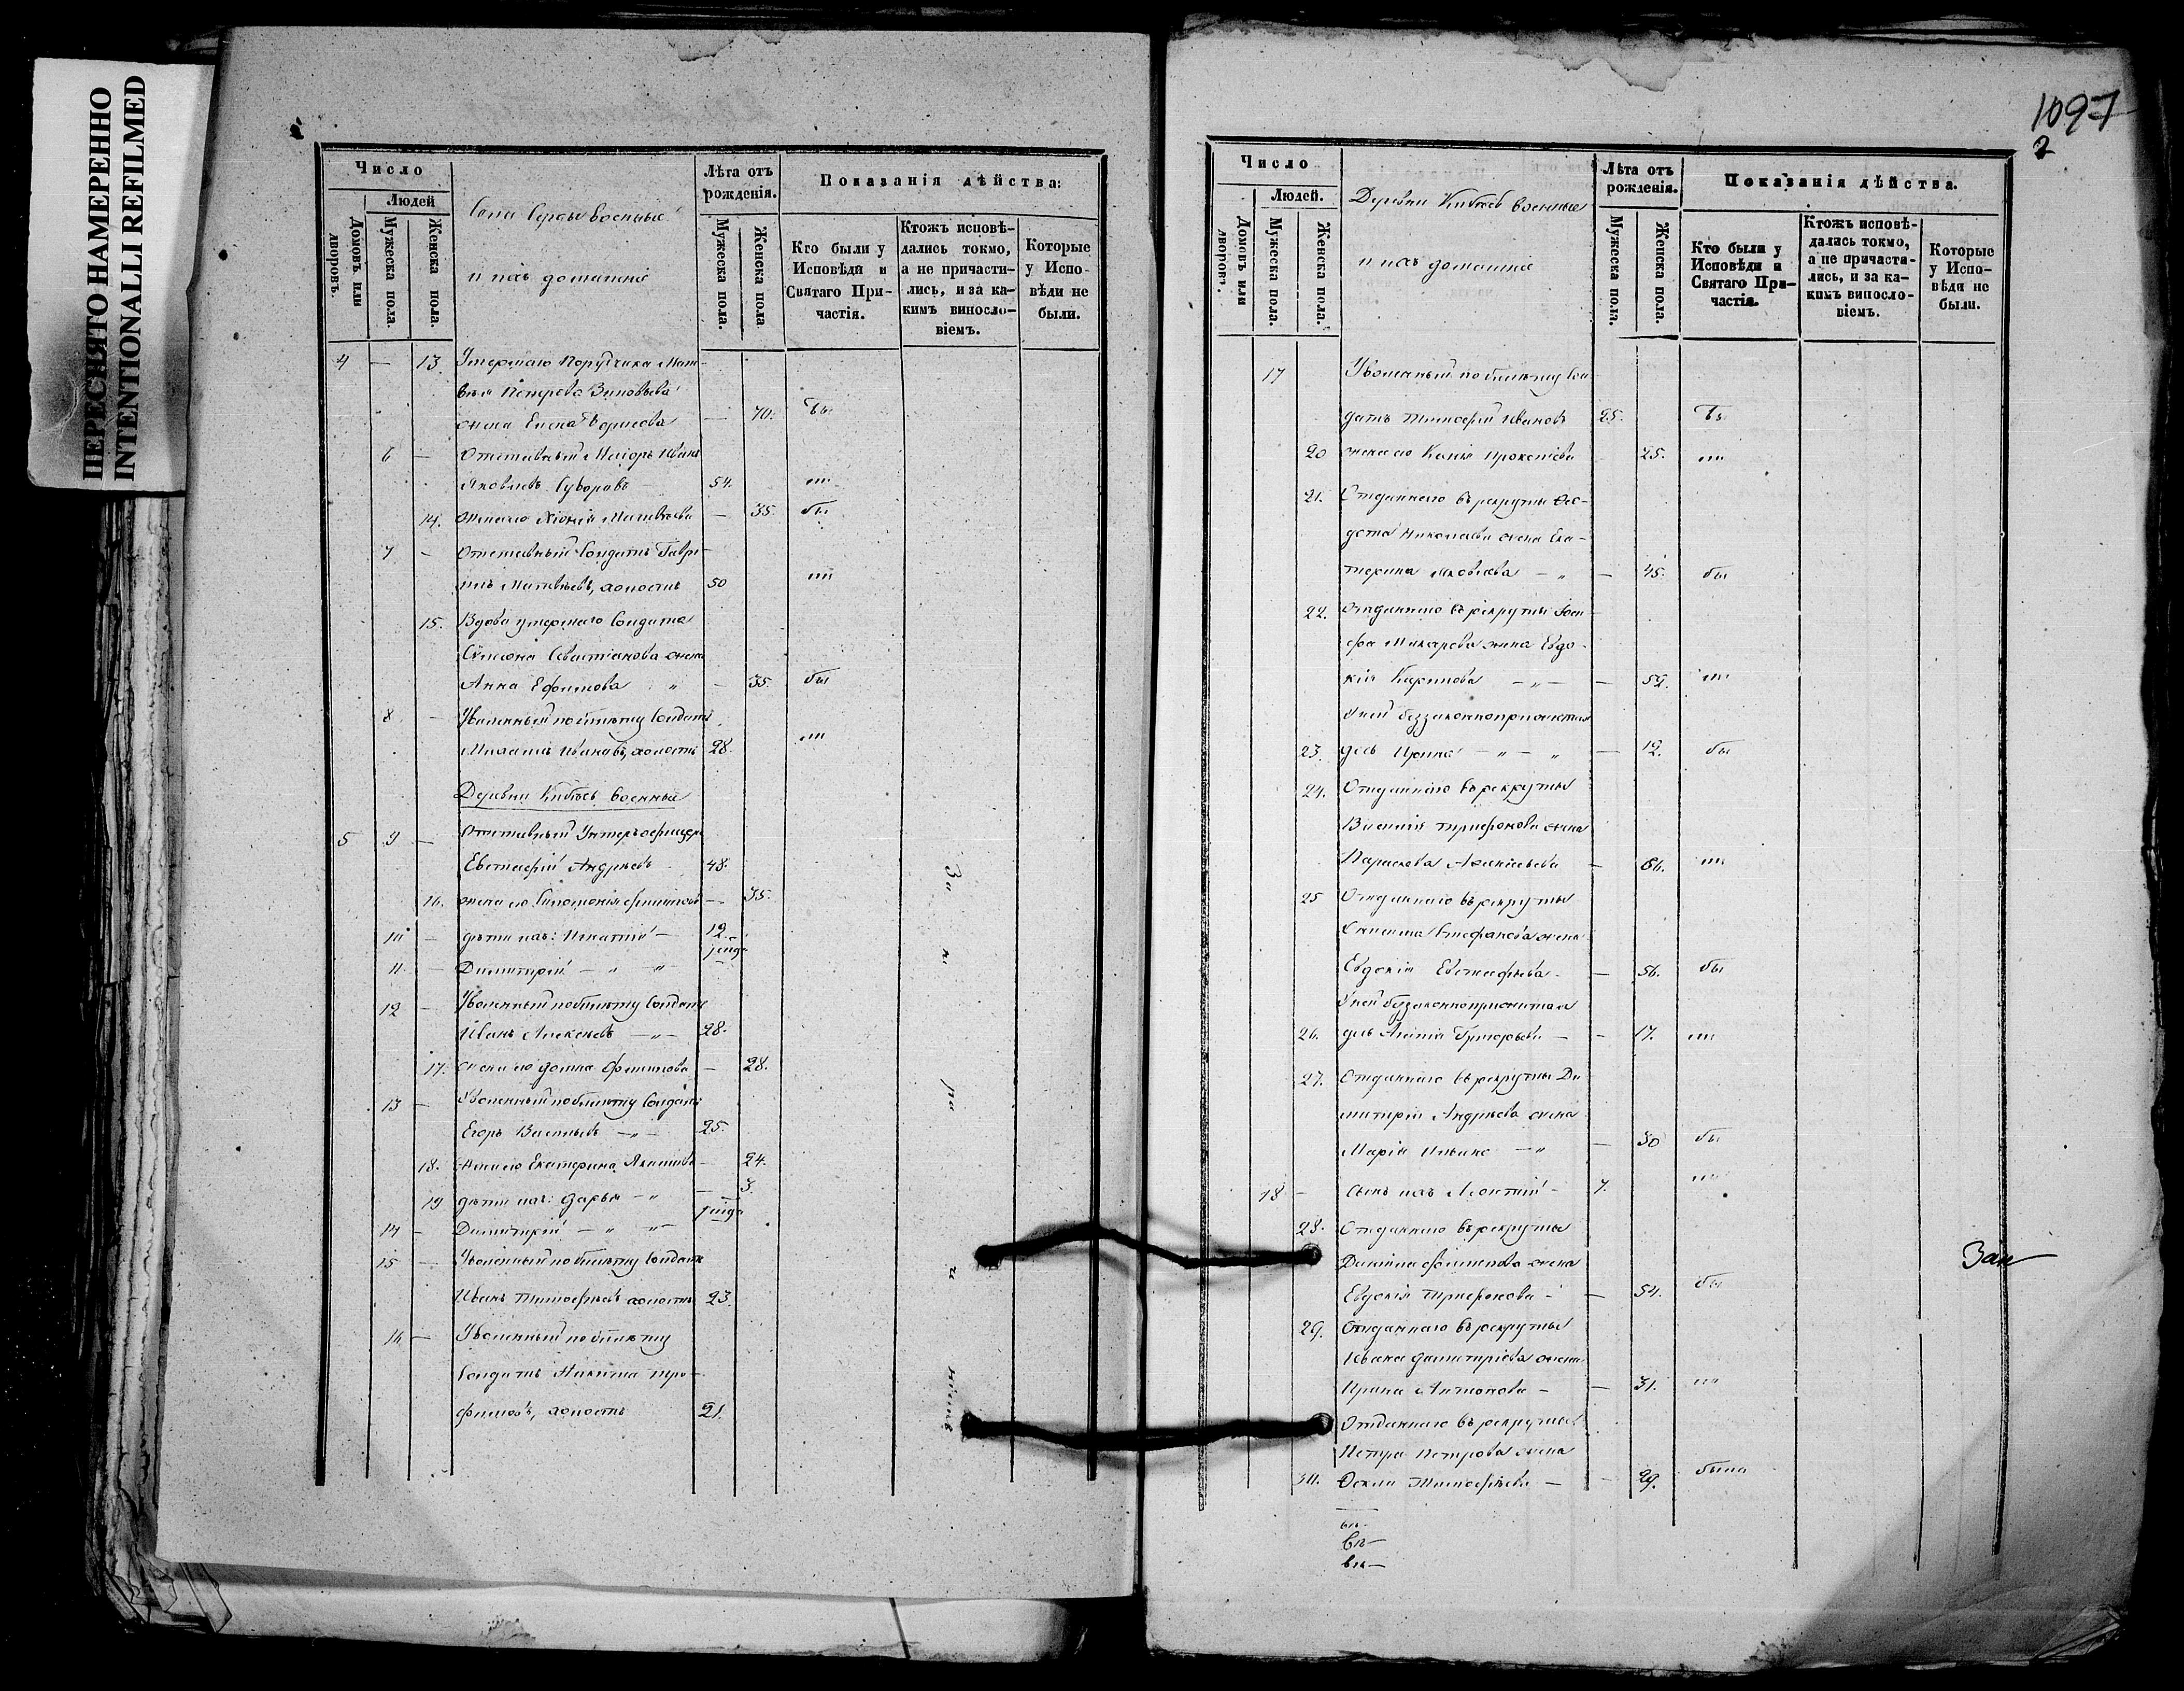 ПЕРЕСНЯТО НАМЕРЕННО
INTENTIONALLI REFILMED
Число
Людей
Домовъ или дворовъ.
Мужеска пола.
Женска пола.
Села военные
и ихъ домашніе
Лѣта отъ рожденія.
Мужеска пола.
Женска пола
Показанія дѣйства:
Кто были у Исповѣди и Святаго Причастія.
Ктожъ исповѣдались токмо, а не причастились, и за какимъ винословіемъ.
Которые у Исповѣди не были.
4 — 13. Умершаго Поручика Мат-
вѣя Петрова Зиновьева
жена Елена Борисова — 70. бы
6 — Отставный Маіоръ Иванъ
Яковлевъ Суворовъ 54.
14. жена его Матвѣева — 35. бы
7 — Отставный Солдатъ Гаврі-
илъ Матвѣевъ, холостъ 50
15. Вдова умершаго Солдата
Сѵмеона Севастіанова жена
Анна Ефимова " — 35. бы
8 — Уволенный по билету Солдатъ
Михаилъ Ивановъ, холостъ 28.
Деревни Кибѣевъ военные
5 9 — Отставный Унтеръ офицеръ
Евстафій Андреевъ 48.
16. жена его Филиппова — 35.
10 — дѣти ихъ: Игнатій — 12
11 — Димитрій — " — " —
12 — Уволенный по билету Солдатъ
Иванъ Алексѣевъ — " — 28.
17. жена его Домна Филиппова — 28.
13 — Уволенный по билету Солдатъ
Егоръ Васильевъ — " — 25.
18. жена его Екатерина — 24.
19 дѣти ихъ: Дарья — " — 3.
14 — Димитрій — " — " —
15 — Уволенный по билету Солдатъ
Иванъ Тимофѣевъ холостъ 23.
16 — Уволенный по билету
Солдатъ Никита Тро-
фимовъ, холостъ 21.
1097
2
Число
Людей.
Домовъ или дворовъ.
Мужеска пола.
Женска пола.
Деревни Кибѣевъ военные
и ихъ домашніе
Лѣта отъ рожденія.
Мужеска пола.
Женска пола.
Показанія дѣйства.
Кто были у Исповѣди и Святаго Причастія.
Ктожъ исповѣдались токмо, а не причастились, и за какимъ винословіемъ.
Которые у Исповѣди не были.
17 Уволенный по билету Сол-
датъ Тимофей Ивановъ 25. бы
20 жена его Прокопіева 25.
21. Отданнаго въ рекруты Ѳео-
дота Николаева жена Ека-
терина Яковлева — " — 45. бы
22. Отданнаго въ рекруты Іоси-
фа Макарова жена Евдо-
кія Карпова — " — — 52.
У ней беззаконноприжитая
23. дочь Ирина — " — " — 12. бы
24. Отданнаго въ рекруты
Василія Трифонова жена
Параскева — 66.
25 Отданнаго въ рекруты
Стефанова жена
Евдокія Евстафьева — — 56. бы
У ней беззаконноприжитая
26. дочь Григорьева — — 17.
27. Отданнаго въ рекруты Ди-
митрія Андреева жена
Марія Ильина — " — 30 бы
18 — сынъ ихъ Леонтій — 7.
28. Отданнаго въ рекруты
Даніила Филиппова жена
Евдокія Трифонова — — 54. бы
29. Отданнаго въ рекруты
Ивана Димитріева жена
Ирина Антонова — — 31.
Отданнаго въ рекруты
Петра Петрова жена
30. Ѳекла Тимофѣева — — 29. была